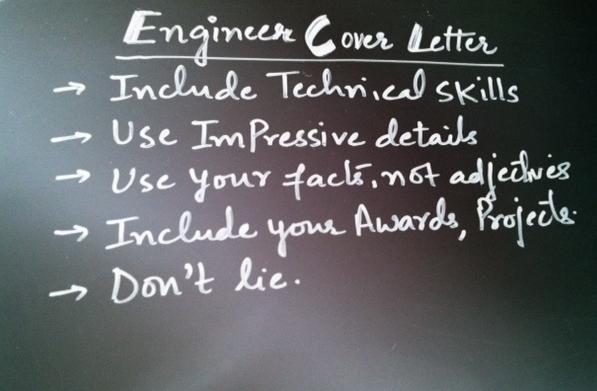 Engineer Cover Letter
→ Include Technical skills
→ Use Impressive details
→ Use your facts, not adjectives
→ Include your Awards, Projects.
→ Don't lie.